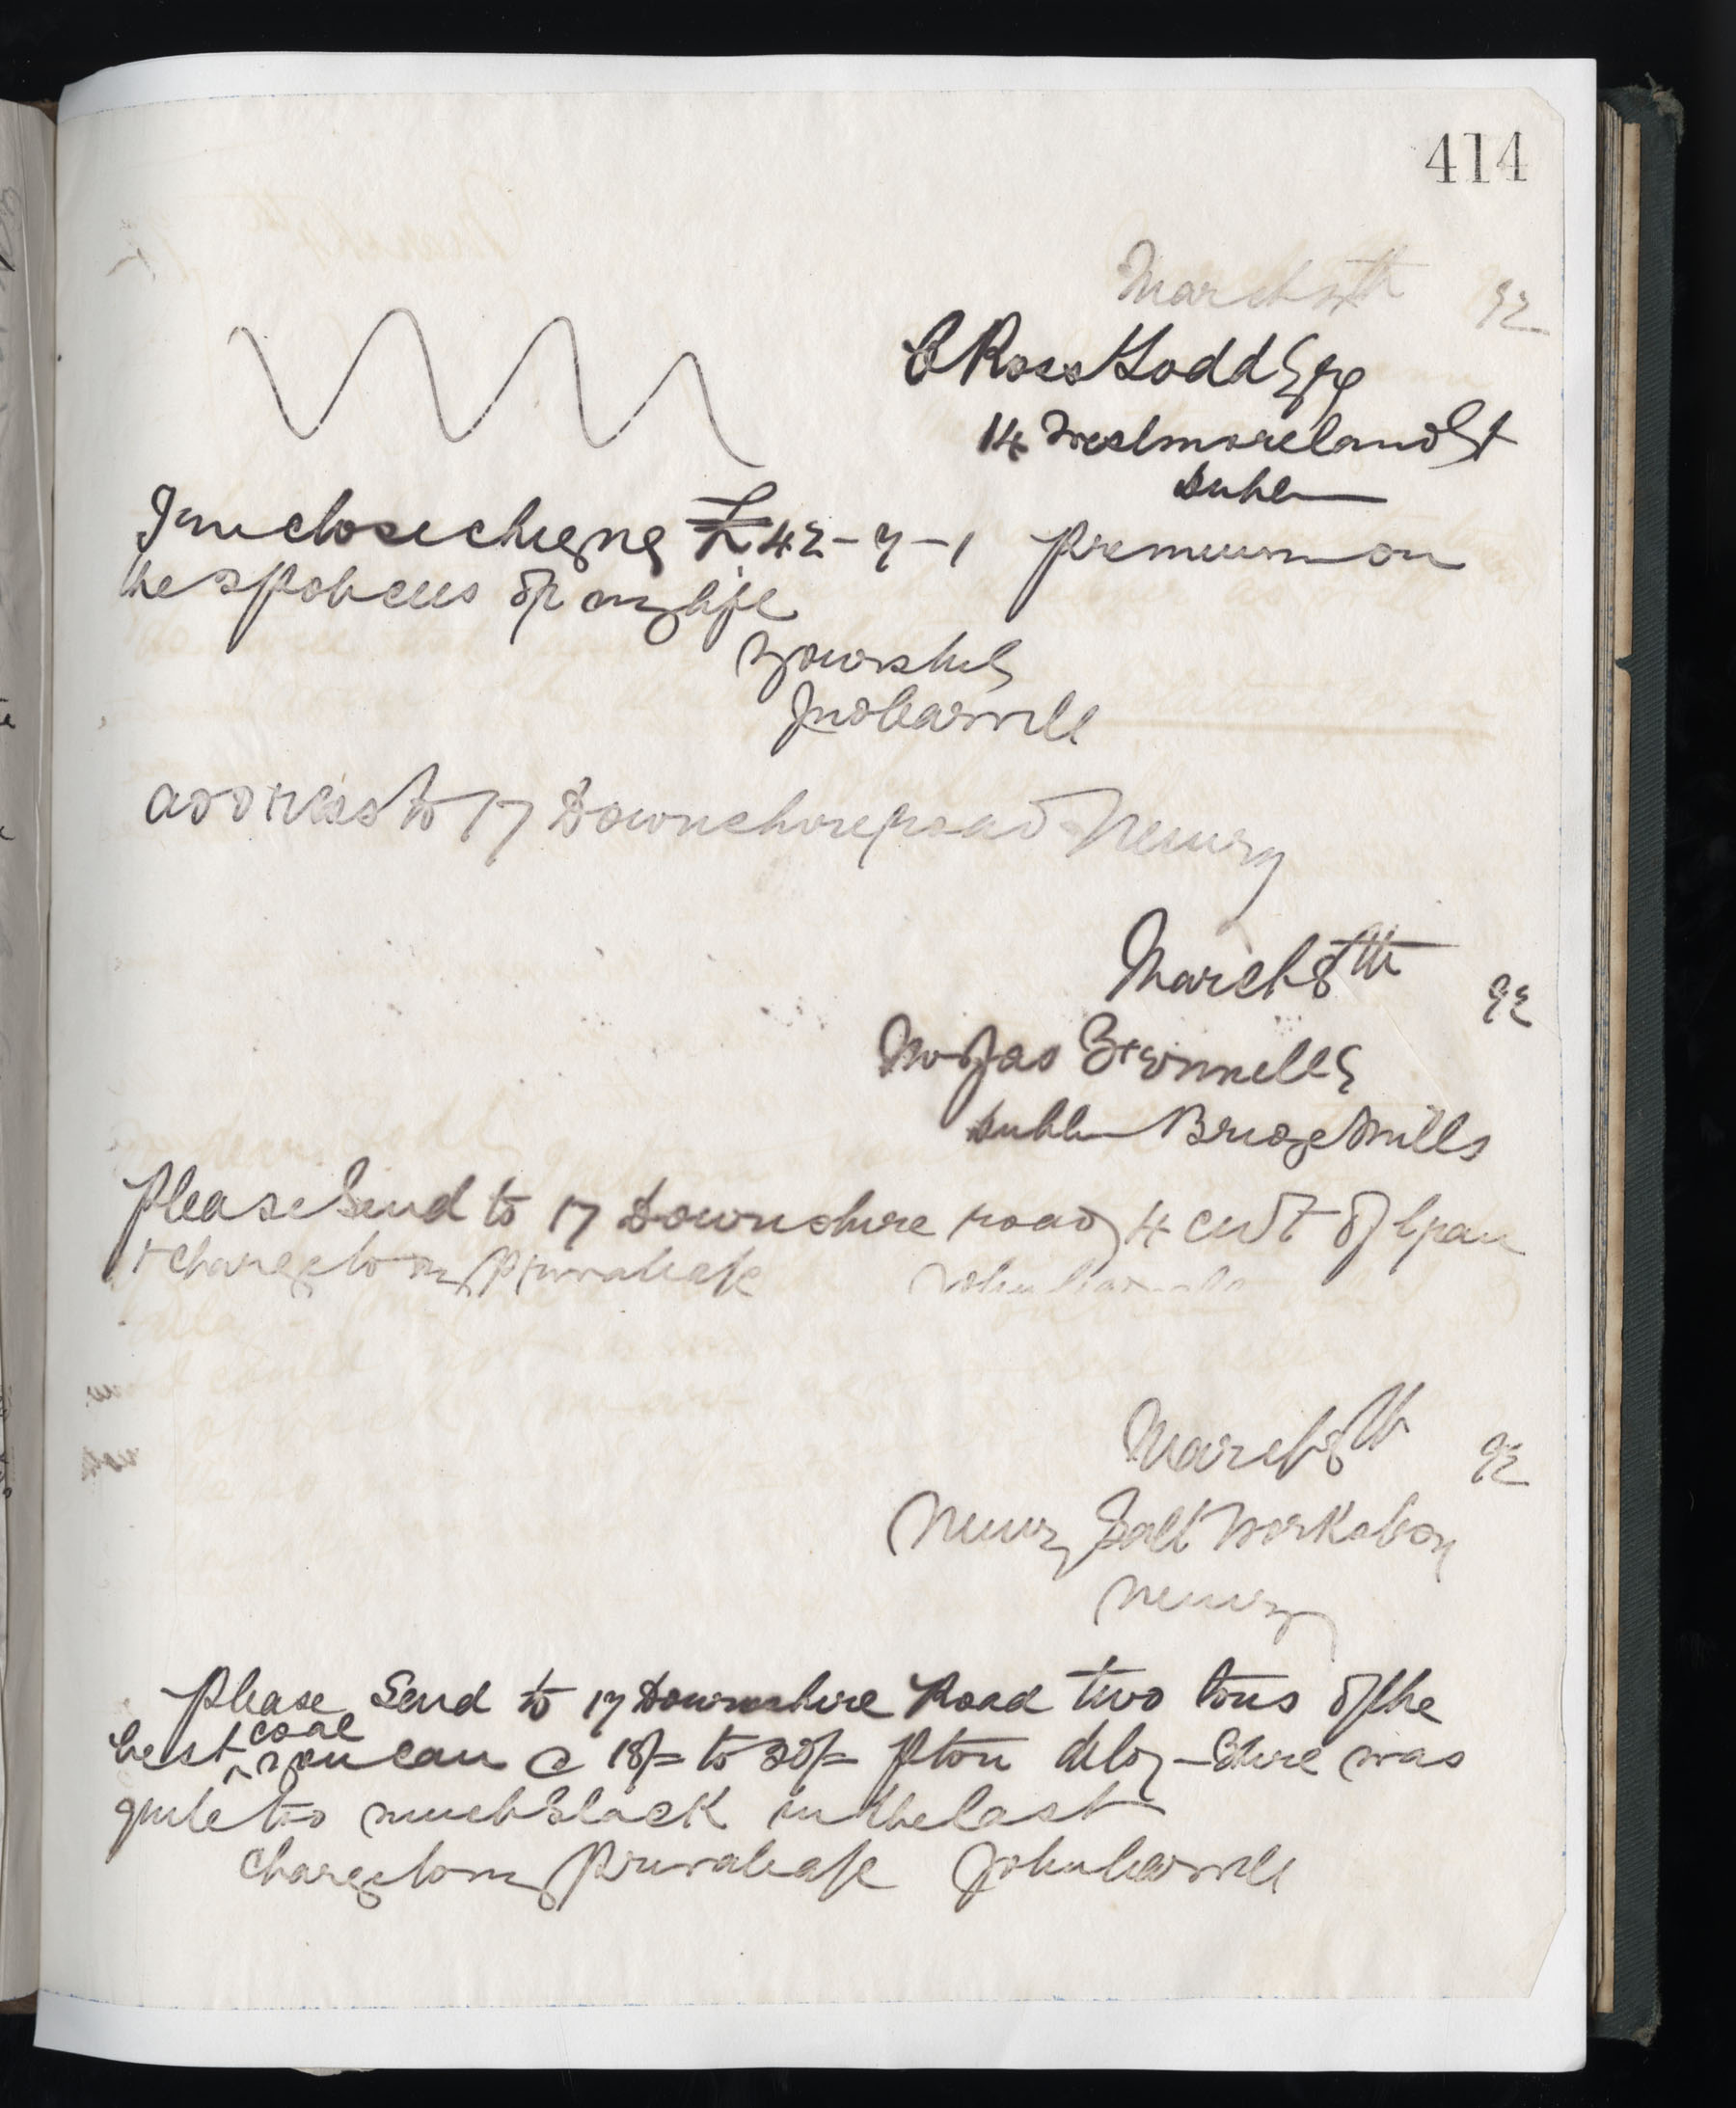 414
March 8th 92
C Ross Todd Esqe
14 Westmoreland St
Dublin
I inclose cheque £42-7-1 premium on
the 2 policies of my life
Yours truly
Jno Carvill
address to 17 Downshire road Newry
March 8th 92
Jas
Dublin Bridge Mills
Please Send to 17 Downshire road 4 cwt of
& charge to my Private a/c John Carvill
March 8th 92
Newry Salt Works Coy
Newry
Please Send to 17 Downshire Road two tons of the
best coal you can @ 18/= to 20/= p ton dely - there was
quite too much Slack in the last
charge to my Private a/c John Carvill